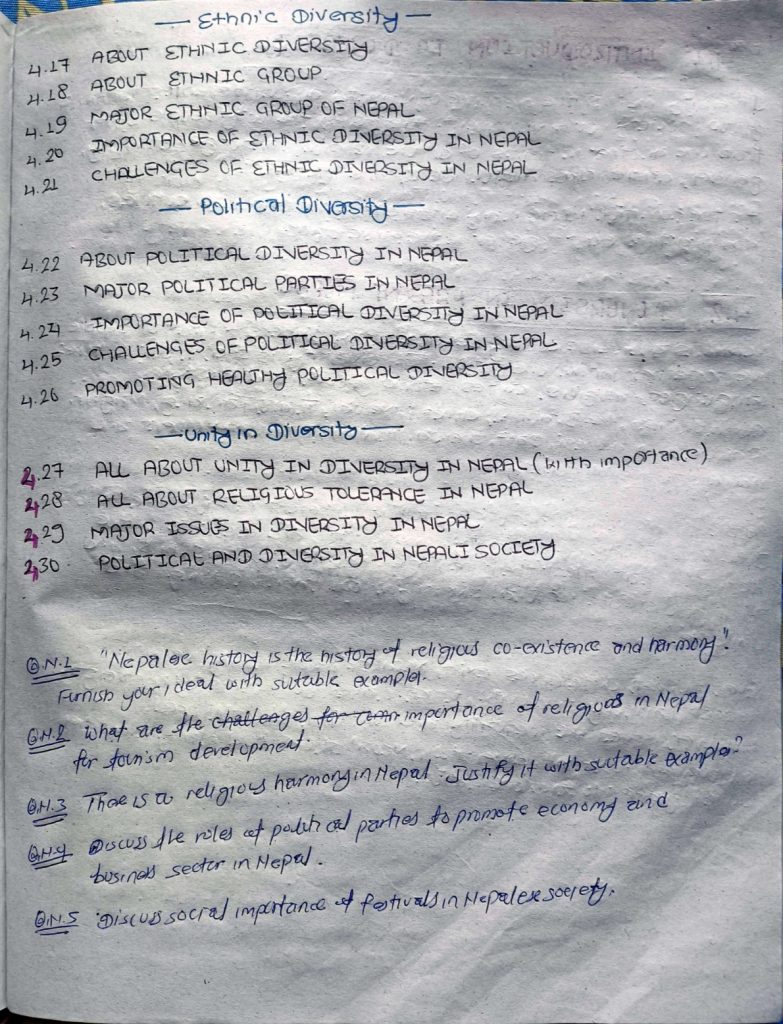 — Ethnic Diversity —
4.17 ABOUT ETHNIC DIVERSITY
4.18 ABOUT ETHNIC GROUP
4.19 MAJOR ETHNIC GROUP OF NEPAL
4.20 IMPORTANCE OF ETHNIC DIVERSITY IN NEPAL
4.21 CHALLENGES OF ETHNIC DIVERSITY IN NEPAL
— Political Diversity —
4.22 ABOUT POLITICAL DIVERSITY IN NEPAL
4.23 MAJOR POLITICAL PARTIES IN NEPAL
4.24 IMPORTANCE OF POLITICAL DIVERSITY IN NEPAL
4.25 CHALLENGES OF POLITICAL DIVERSITY IN NEPAL
4.26 PROMOTING HEALTHY POLITICAL DIVERSITY
— Unity in Diversity —
4.27 ALL ABOUT UNITY IN DIVERSITY IN NEPAL (with importance)
4.28 ALL ABOUT RELIGIOUS TOLERANCE IN NEPAL
4.29 MAJOR ISSUES IN DIVERSITY IN NEPAL
4.30 POLITICAL AND DIVERSITY IN NEPALI SOCIETY
Q.N.1 "Nepalese history is the history of religious co-existence and harmony".
Furnish your ideal with suitable examples.
Q.N.2 What are the challenges for importance of religious in Nepal
for tourism development.
Q.N.3 There is a religious harmony in Nepal. Justify it with suitable examples?
Q.N.4 Discuss the roles of political parties to promote economy and
business sector in Nepal.
Q.N.5 Discuss social importance of festivals in Nepalese society.